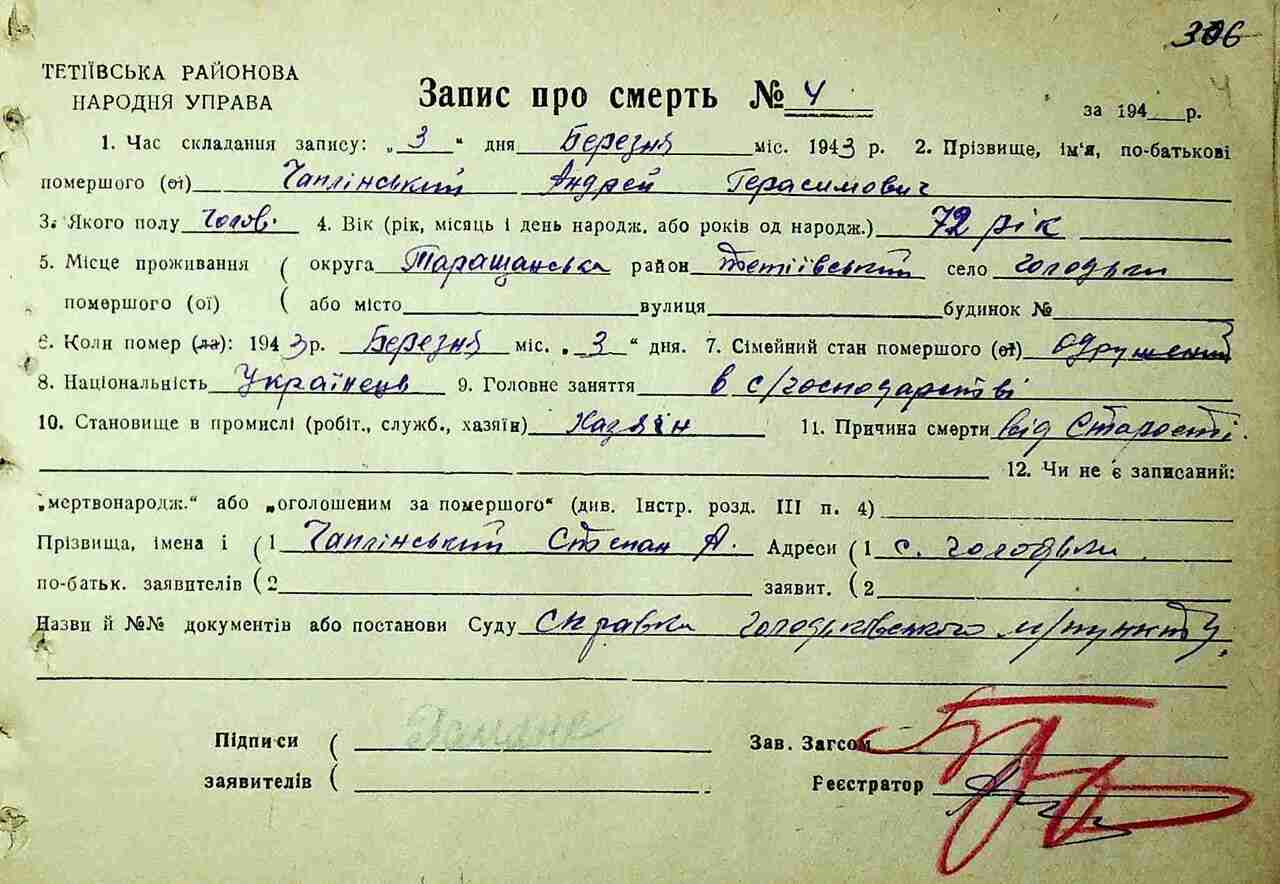 306
4
ТЕТІЇВСЬКА РАЙОНОВА
НАРОДНЯ УПРАВА
Запис про смерть № 4
за 194 р.
1. Час складання запису: „3“ дня Березня міс. 1943 р. 2. Прізвище, ім'я, по-батькові
помершого (ої) Чаплінський Андрей Герасимович
3. Якого полу Чолов. 4. Вік (рік, місяць і день народж. або років од народж.) 72 рік
5. Місце проживання ( округа Таращанська район Тетіївський село Голодьки
помершого (ої) ( або місто вулиця будинок №
6. Коли помер (ла): 1943 р. Березня міс. „3“ дня. 7. Сімейний стан помершого (ої) одружений
8. Національність Українець 9. Головне заняття в с/господарстві
10. Становище в промислі (робіт., служб., хазяїн) Хазяін 11. Причина смерти від Старості.
12. Чи не є записаний:
„мертвонародж.“ або „оголошеним за помершого“ (див. Інстр. розд. III п. 4)
Прізвища, імена і (1 Чаплінський Степан А. Адреси (1 с. Голодьки
по-батьк. заявителів (2 заявит. (2
Назви й №№ документів або постанови Суду Справка Голодьківського м/пункту,
Підписи ( Зав. Загсом
заявителів ( Реєстратор